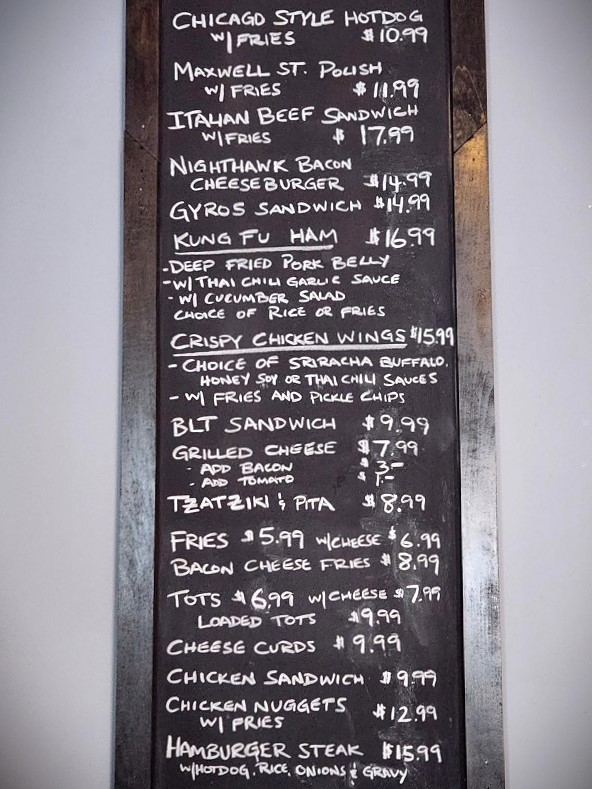 CHICAGO STYLE HOTDOG
W/ FRIES $10.99
MAXWELL ST. POLISH
W/ FRIES $11.99
ITALIAN BEEF SANDWICH
W/FRIES $17.99
NIGHTHAWK BACON
CHEESEBURGER $14.99
GYROS SANDWICH $14.99
KUNG FU HAM $16.99
-DEEP FRIED PORK BELLY
-W/ THAI CHILI GARLIC SAUCE
- W/ CUCUMBER SALAD
CHOICE OF RICE OR FRIES
CRISPY CHICKEN WINGS $15.99
- CHOICE OF SRIRACHA BUFFALO,
HONEY SOY OR THAI CHILI SAUCES
- W/ FRIES AND PICKLE CHIPS
BLT SANDWICH $9.99
GRILLED CHEESE $7.99
- ADD BACON $3-
- ADD TOMATO $1.-
TZATZIKI & PITA $8.99
FRIES $5.99 W/CHEESE $6.99
BACON CHEESE FRIES $8.99
TOTS $6.99 W/CHEESE $7.99
LOADED TOTS $9.99
CHEESE CURDS $9.99
CHICKEN SANDWICH $9.99
CHICKEN NUGGETS
W/ FRIES $12.99
HAMBURGER STEAK $15.99
W/HOTDOG, RICE, ONIONS & GRAVY